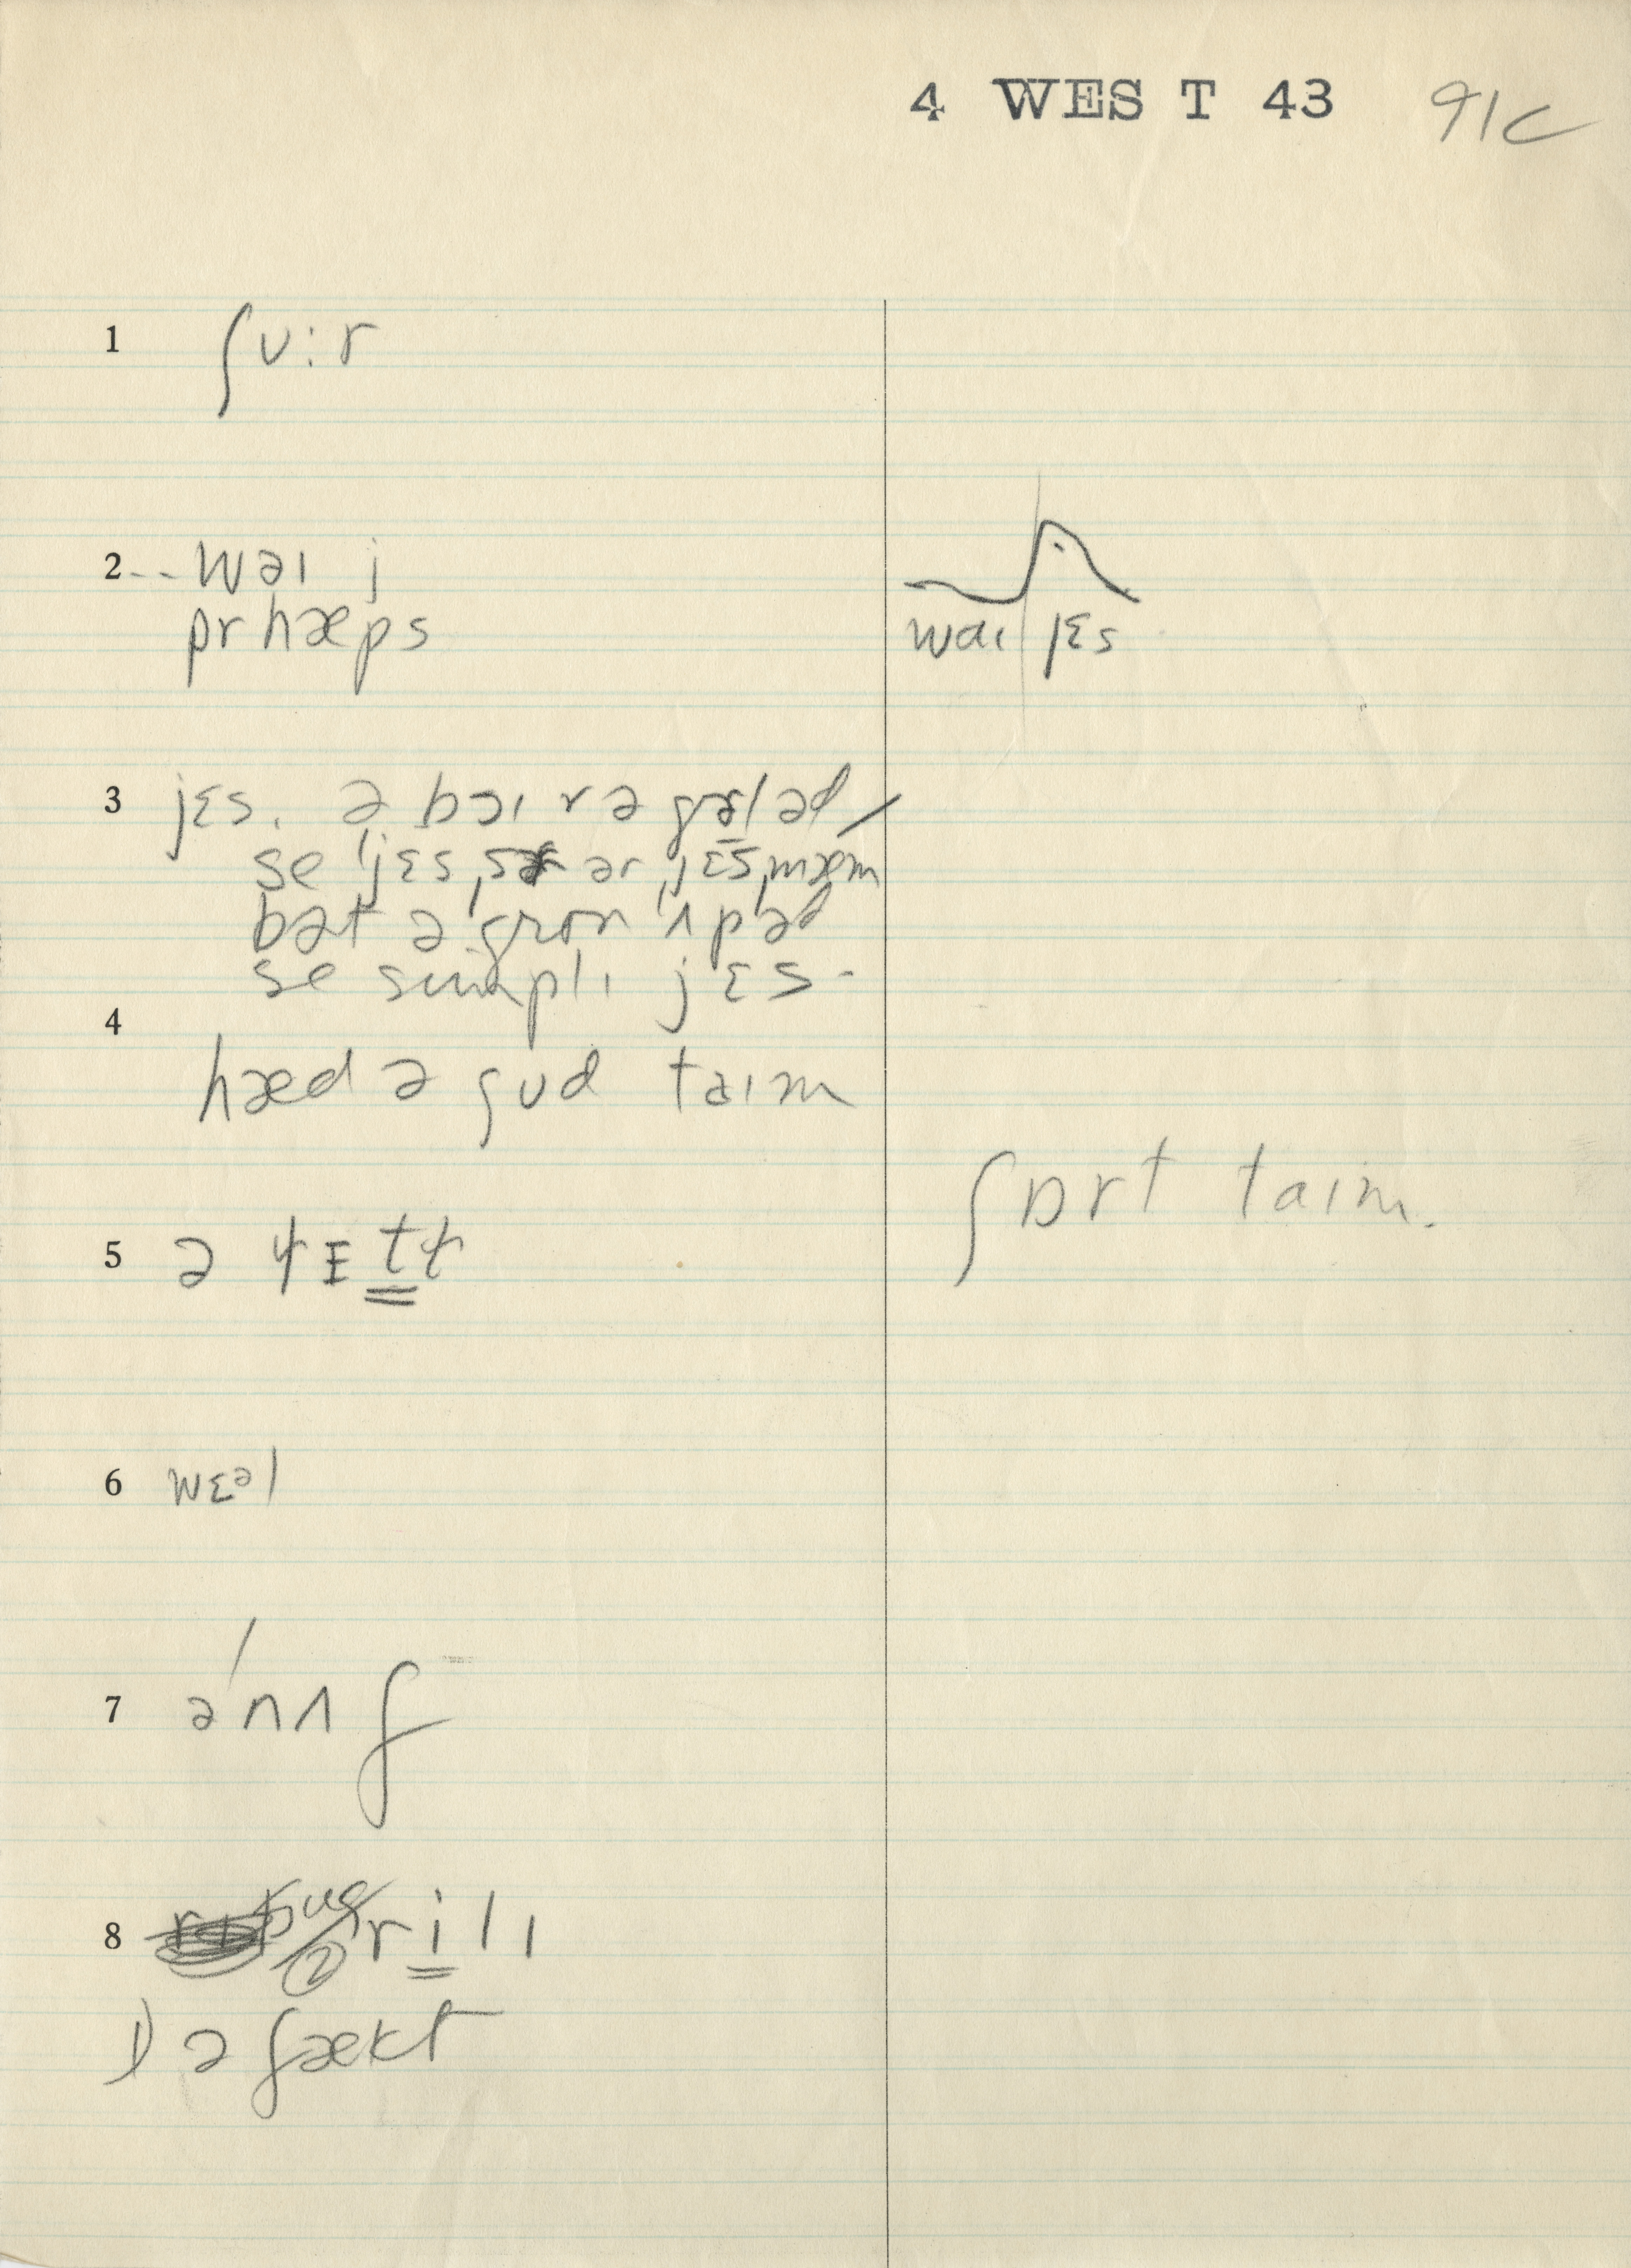 4 WEST 43 91c
1 ʃʊ:r
2 -- wəɪ j
prhæps
waɪ jɛs
3 jɛs. ə bɔɪ r ə gæləd
se 'jɛs, sər ər 'jɛs, mæm
bət ə gron 'ʌp əd
se sɪmplɪ jɛs.
4
hæd ə gʊd taɪm
ʃɒrt taɪm.
5 ə
6 wɛəl
7 ə'nʌf
8 ② rilɪ
1) ə fækt